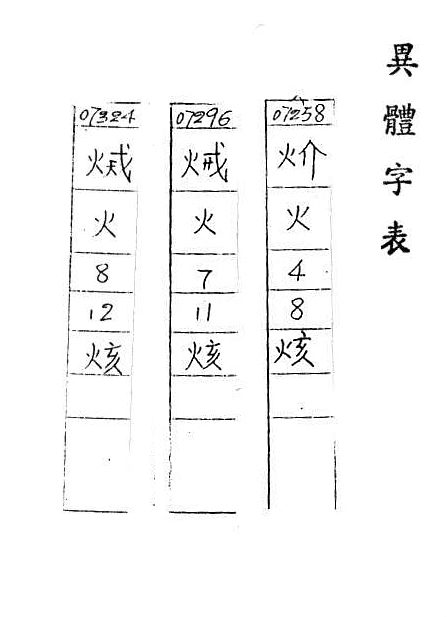 異體字表
07258
炌
火
4
8
烗
07296
火
7
11
烗
07324
火
8
12
烗